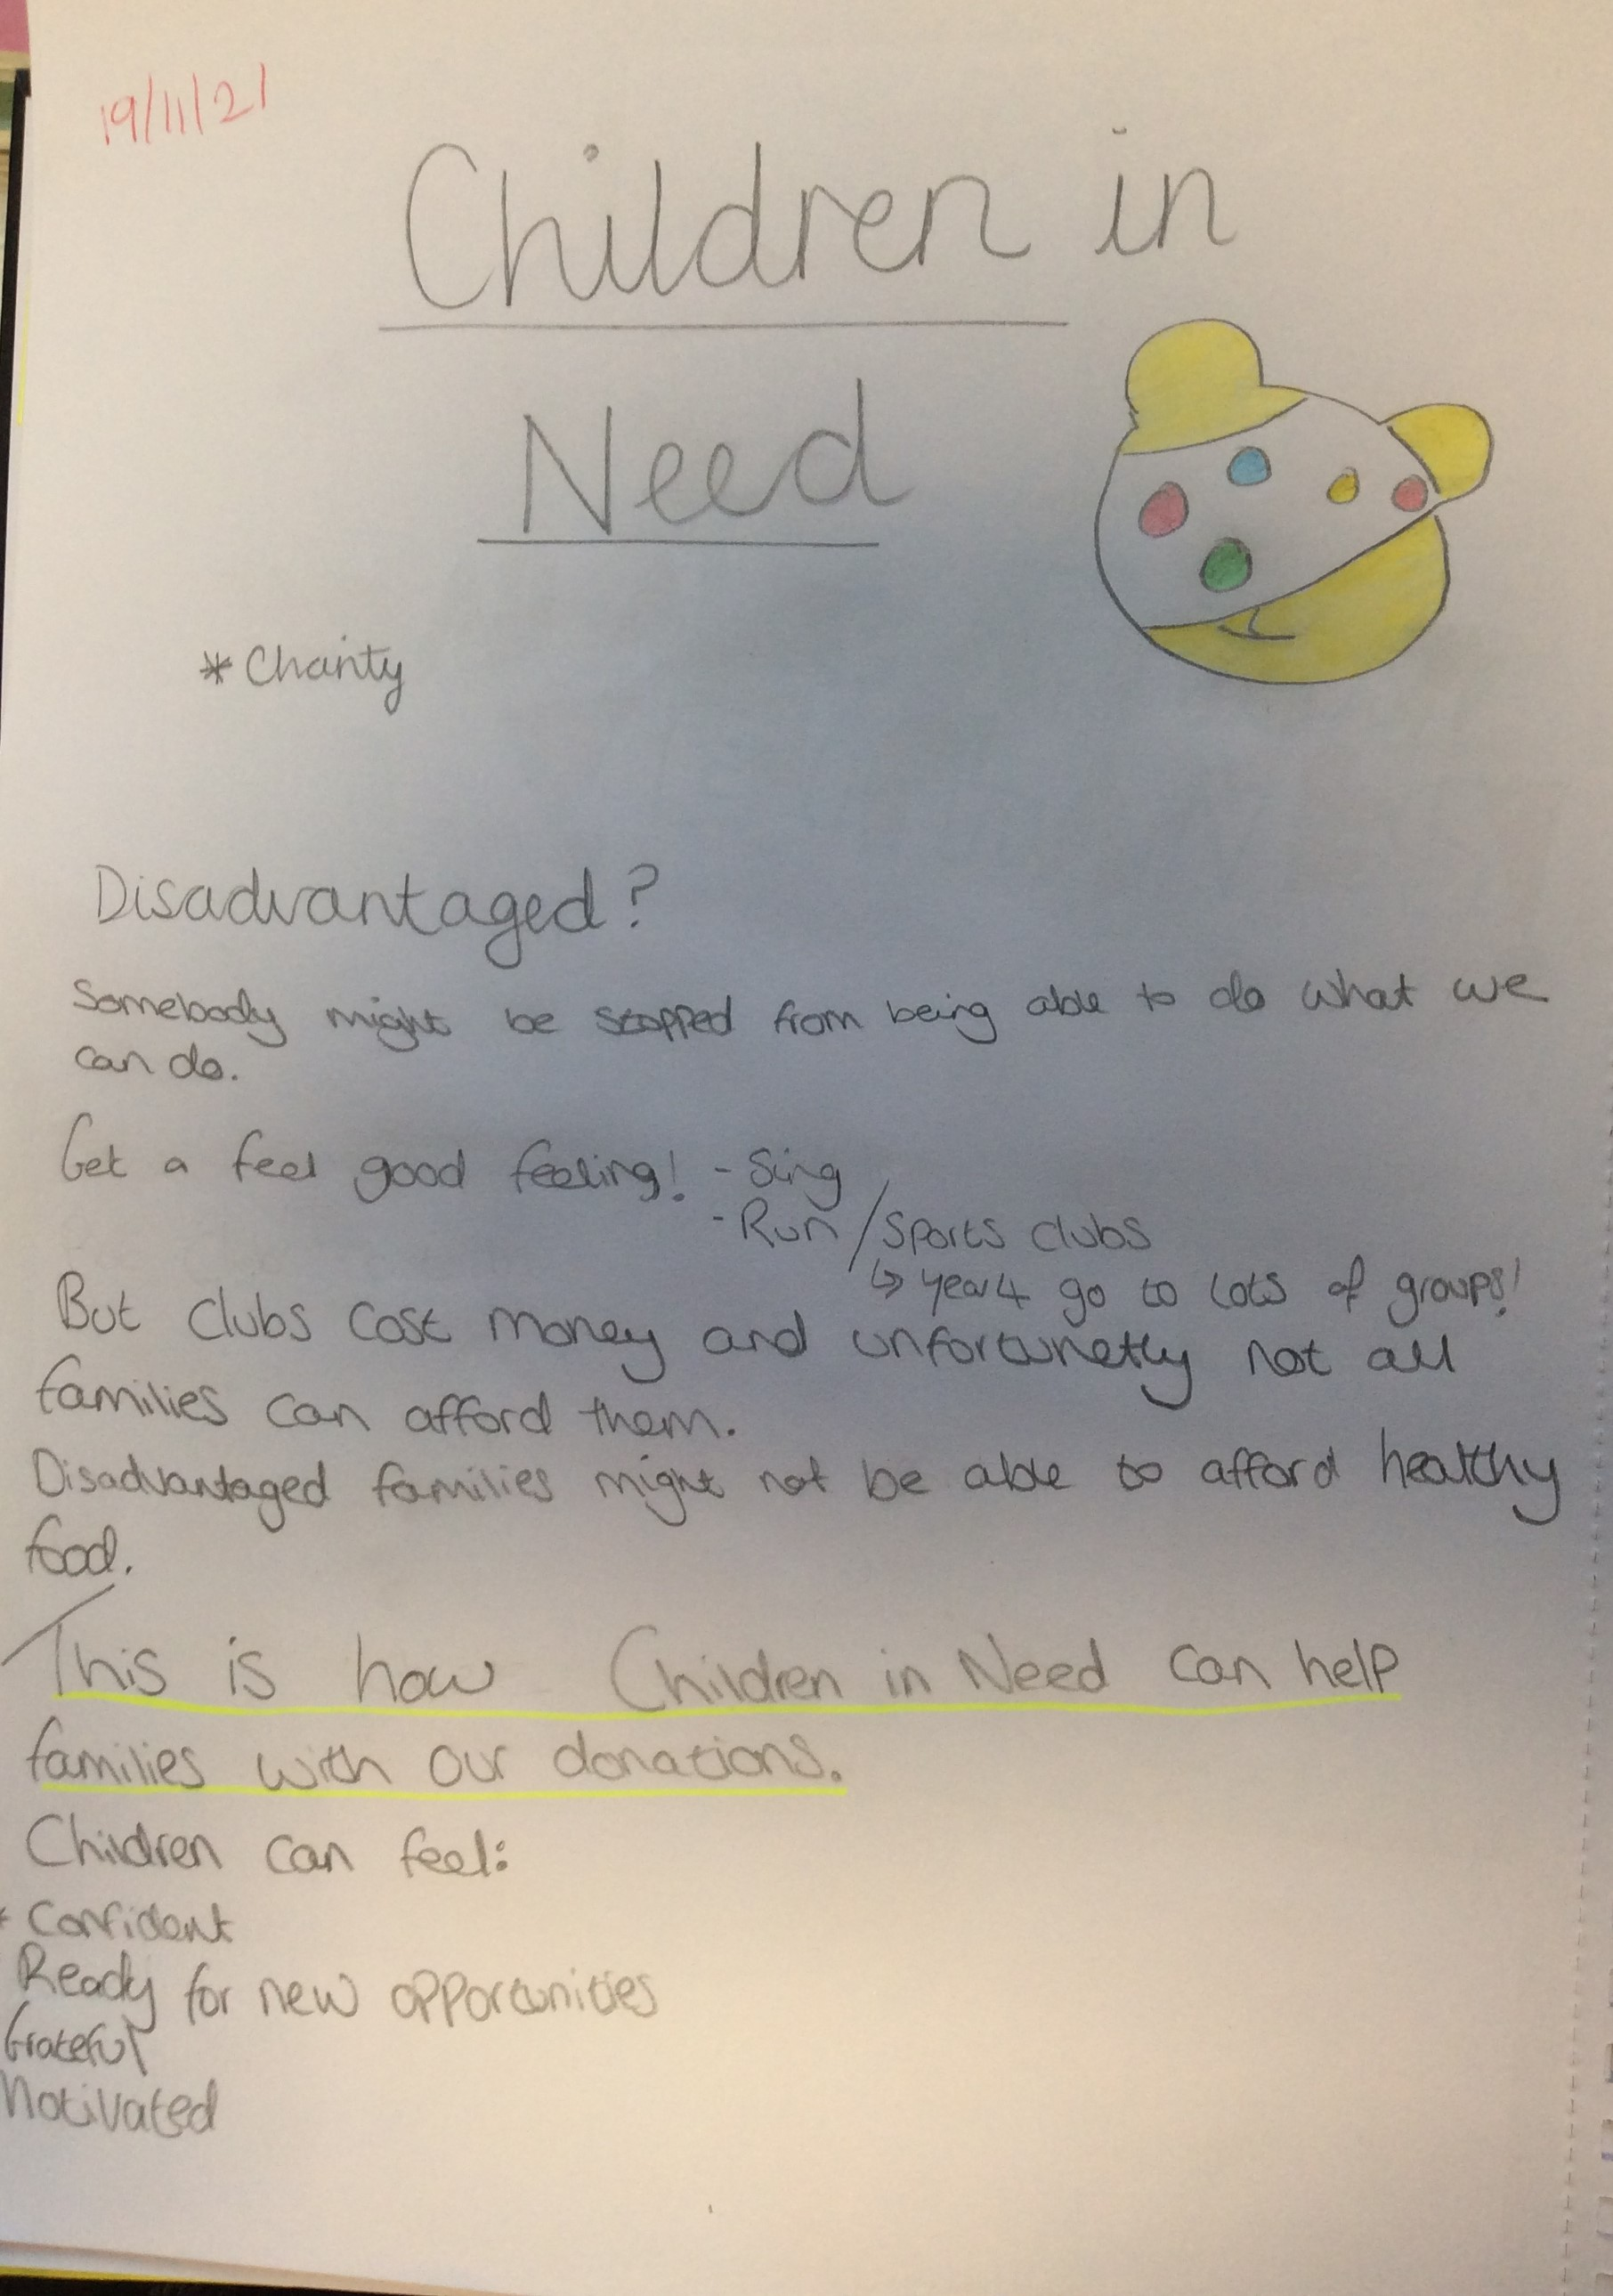 19/11/21
Children in
Need
* Charity
Disadvantaged?
Somebody might be stopped from being able to do what we
can do.
Get a feel good feeling! - Sing
- Run / Sports clubs
↳ year 4 go to lots of groups!
But clubs cost money and unfortunetly not all
families can afford them.
Disadvantaged families might not be able to afford healthy
food.
This is how Children in Need can help
families with our donations.
Children can feel:
* Confident
Ready for new opportunities
Grateful
Motivated